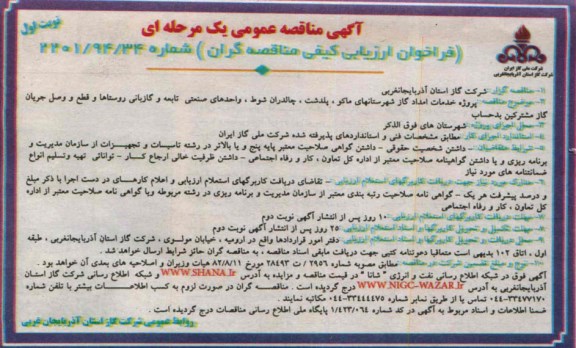 نوبت اول
آگهی مناقصه عمومی یک مرحله ای
(فراخوان ارزیابی کیفی مناقصه گران) شماره ۲۲۰۱/۹۴/۳۴
شرکت ملی گاز ایران
شرکت گاز استان آذربایجانغربی
۱- مناقصه گزار: شرکت گاز استان آذربایجانغربی
۲- موضوع مناقصه: پروژه خدمات امداد گاز شهرستانهای ماکو ، پلدشت ، چالدران شوط ، واحدهای صنعتی تابعه و گازبانی روستاها و قطع و وصل جریان
گاز مشترکین بدحساب
۳- محل اجرای پروژه: شهرستان های فوق الذکر
۴- استاندارد اجرای کار: مطابق مشخصات فنی و استانداردهای پذیرفته شده شرکت ملی گاز ایران
۵- شرایط متقاضیان: - داشتن شخصیت حقوقی - داشتن گواهی صلاحیت معتبر پایه پنج و یا بالاتر در رشته تاسیسات و تجهیزات از سازمان مدیریت و
برنامه ریزی و یا داشتن گواهینامه صلاحیت معتبر از اداره کل تعاون ، کار و رفاه اجتماعی - داشتن ظرفیت خالی ارجاع کار - توانائی تهیه وتسلیم انواع
ضمانتنامه های مورد نیاز
۶- مدارک مورد نیاز جهت دریافت کاربرگهای استعلام ارزیابی: - تقاضای دریافت کاربرگهای استعلام ارزیابی و اعلام کارهای در دست اجرا با ذکر مبلغ
و درصد پیشرفت هر یک - گواهی نامه صلاحیت رتبه بندی معتبر از سازمان مدیریت و برنامه ریزی در رشته مربوطه ویا گواهی نامه صلاحیت معتبر از اداره
کل تعاون ، کار و رفاه اجتماعی
۷- مهلت دریافت کاربرگهای استعلام ارزیابی: ۱۰ روز پس از انتشار آگهی نوبت دوم
۸- مهلت تکمیل و تحویل کاربرگهای استعلام ارزیابی: ۲۵ روز پس از انتشار آگهی نوبت دوم
۹- محل دریافت و تحویل کاربرگها و اسناد استعلام ارزیابی: دفتر امور قراردادها واقع در ارومیه ، خیابان مولوی ، شرکت گاز استان آذربایجانغربی ، طبقه
اول ، اتاق ۱۰۲ بدیهی است متعاقبا دعوتنامه کتبی جهت دریافت مابقی اسناد مناقصه ، به مناقصه گران حائز شرایط ارسال خواهد شد .
۱۰- نوع و مبلغ تضمین شرکت در مناقصه: مطابق مصوبه شماره ۲۹۵۶ / ت ۲۸۴۹۳ مورخ ۸۲/۸/۱۱ هیات وزیران و اصلاحیه های بعدی آن خواهد بود .
آگهی فوق در شبکه اطلاع رسانی نفت و انرژی " شانا " در قیمت مناقصه و مزایده به آدرس WWW.SHANA.Ir و شبکه اطلاع رسانی شرکت گاز استان
آذربایجانغربی به آدرس WWW.NIGC-WAZAR.Ir درج گردیده است . مناقصه گران در صورت لزوم به کسب اطلاعات بیشتر با تلفن شماره
۰۴۴-۳۳۴۷۷۱۷۰ تماس یا از طریق نمابر شماره ۰۴۴-۳۳۴۴۴۴۷۵ مکاتبه نمایند .
ضمنا اطلاعات و اسناد مربوط به آگهی در کد شماره ۱/۴۲۳/۰۶۴ پایگاه ملی اطلاع رسانی مناقصات درج گردیده است .
روابط عمومی شرکت گاز استان آذربایجان غربی